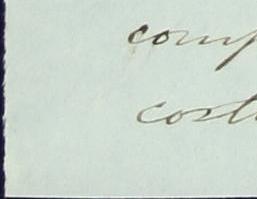 comp
cost